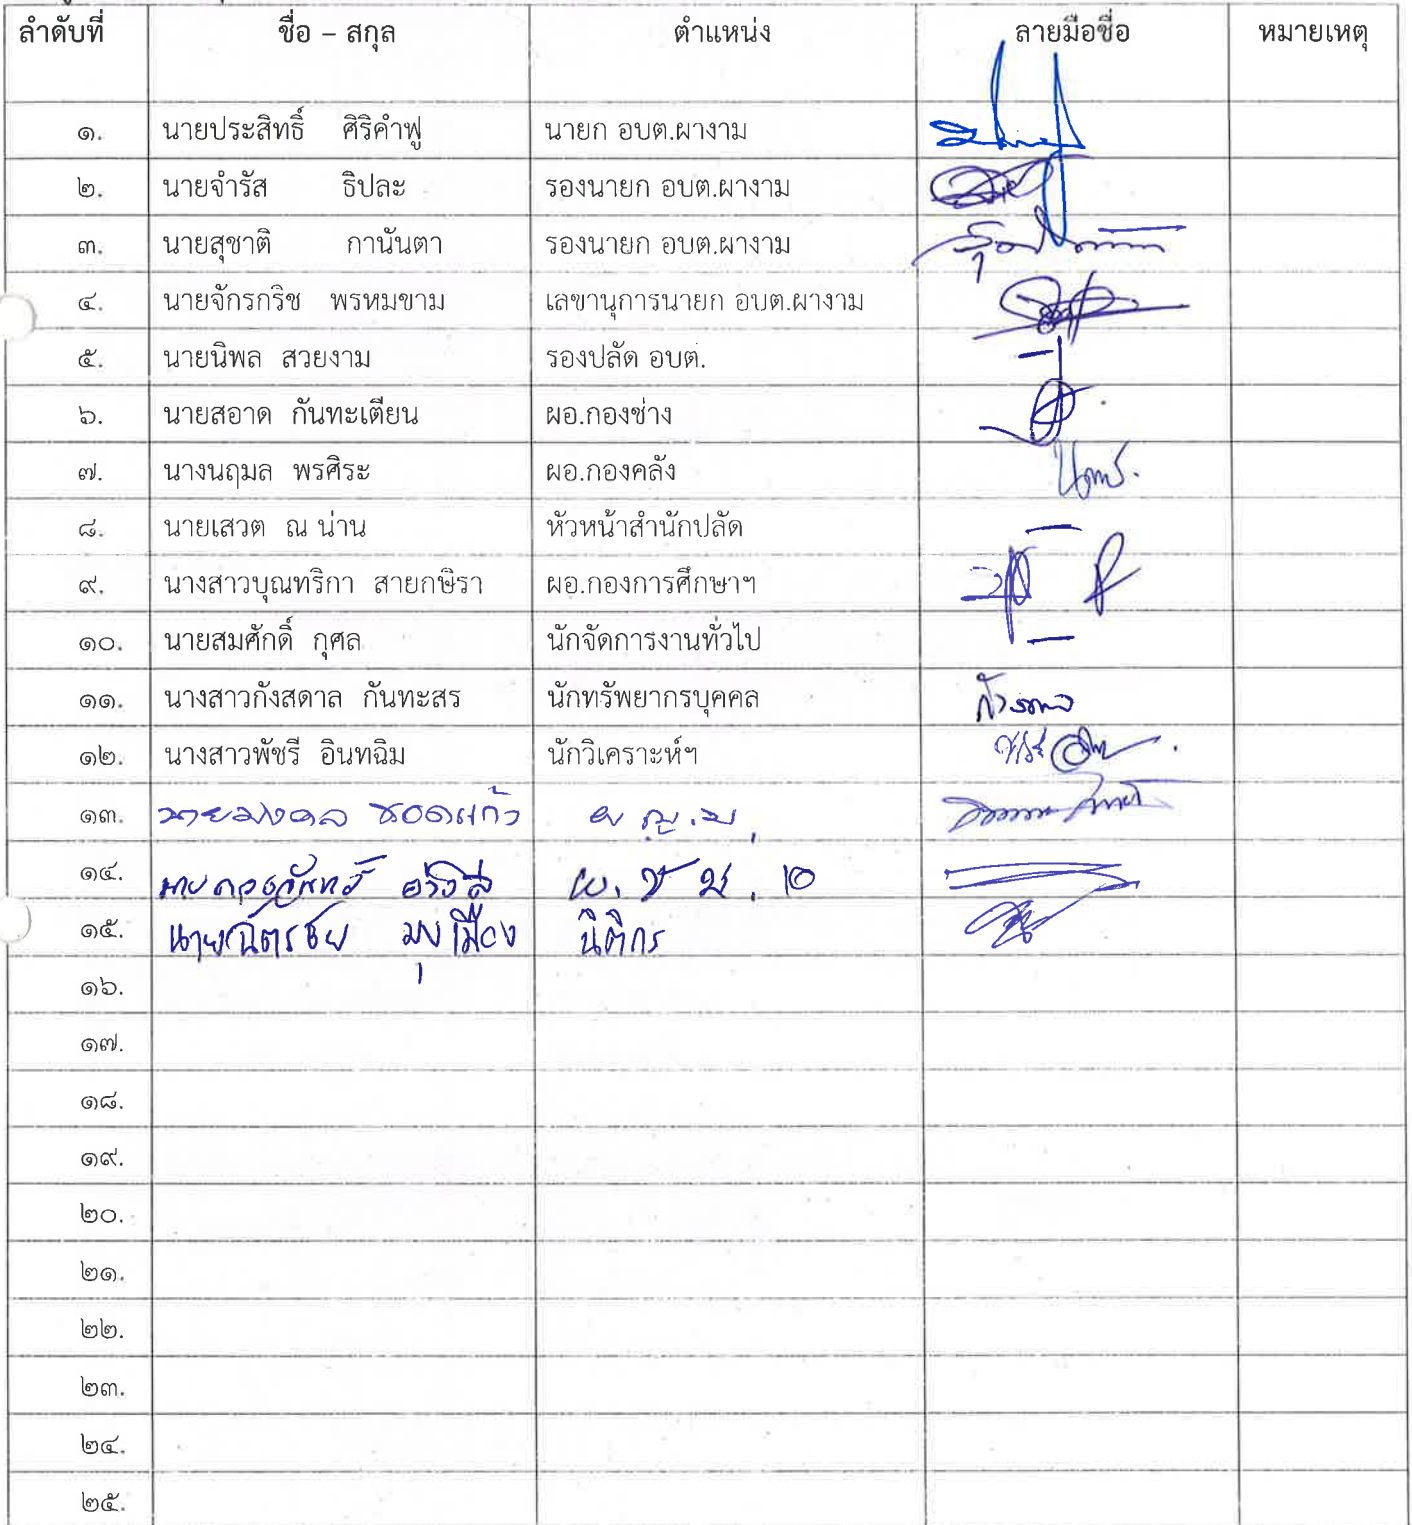 ลำดับที่ ชื่อ – สกุล ตำแหน่ง ลายมือชื่อ หมายเหตุ
๑. นายประสิทธิ์ ศิริคำฟู นายก อบต.ผางาม
๒. นายจำรัส ธิปละ รองนายก อบต.ผางาม
๓. นายสุชาติ กานันตา รองนายก อบต.ผางาม
๔. นายจักรกริช พรหมขาม เลขานุการนายก อบต.ผางาม
๕. นายนิพล สวยงาม รองปลัด อบต.
๖. นายสอาด กันทะเตียน ผอ.กองช่าง
๗. นางนฤมล พรศิระ ผอ.กองคลัง
๘. นายเสวต ณ น่าน หัวหน้าสำนักปลัด
๙. นางสาวบุณทริกา สายกษิรา ผอ.กองการศึกษาฯ
๑๐. นายสมศักดิ์ กุศล นักจัดการงานทั่วไป
๑๑. นางสาวกังสดาล กันทะสร นักทรัพยากรบุคคล
๑๒. นางสาวพัชรี อินทฉิม นักวิเคราะห์ฯ
๑๓. นายมงคล ยอดแก้ว
๑๔. ๒
๑๕. นายฉัตรชัย มุงเมือง นิติกร
๑๖.
๑๗.
๑๘.
๑๙.
๒๐.
๒๑.
๒๒.
๒๓.
๒๔.
๒๕.